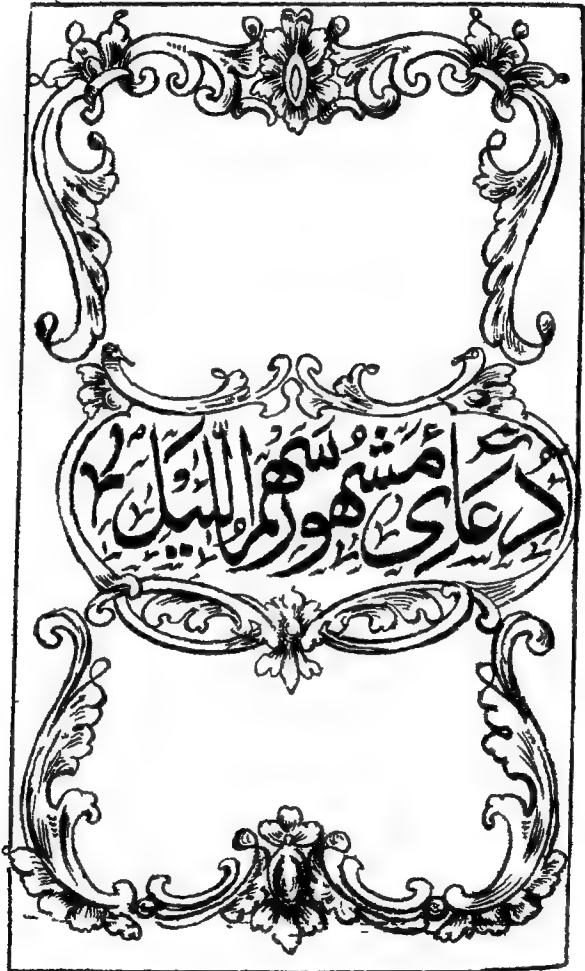 دُعَاىٔ مَشهُور سَهمُ اللَّيَل